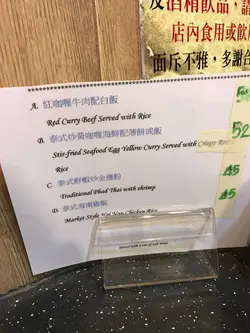 及酒精飲品,
店內食用或飲
面斥不雅,多謝合
A. 紅咖喱牛肉配白飯
Red Curry Beef Served with Rice
B. 泰式炒黃咖喱海鮮配薄餅或飯
Stir-fried Seafood Egg Yellow Curry Served with Crispy
Rice
52
C. 泰式鮮蝦炒金邊粉
Traditional Phad Thai with shrimp
45
D. 泰式海南雞飯
Market Style Hai Nan Chicken Rice
45
Served with a can of soft drink